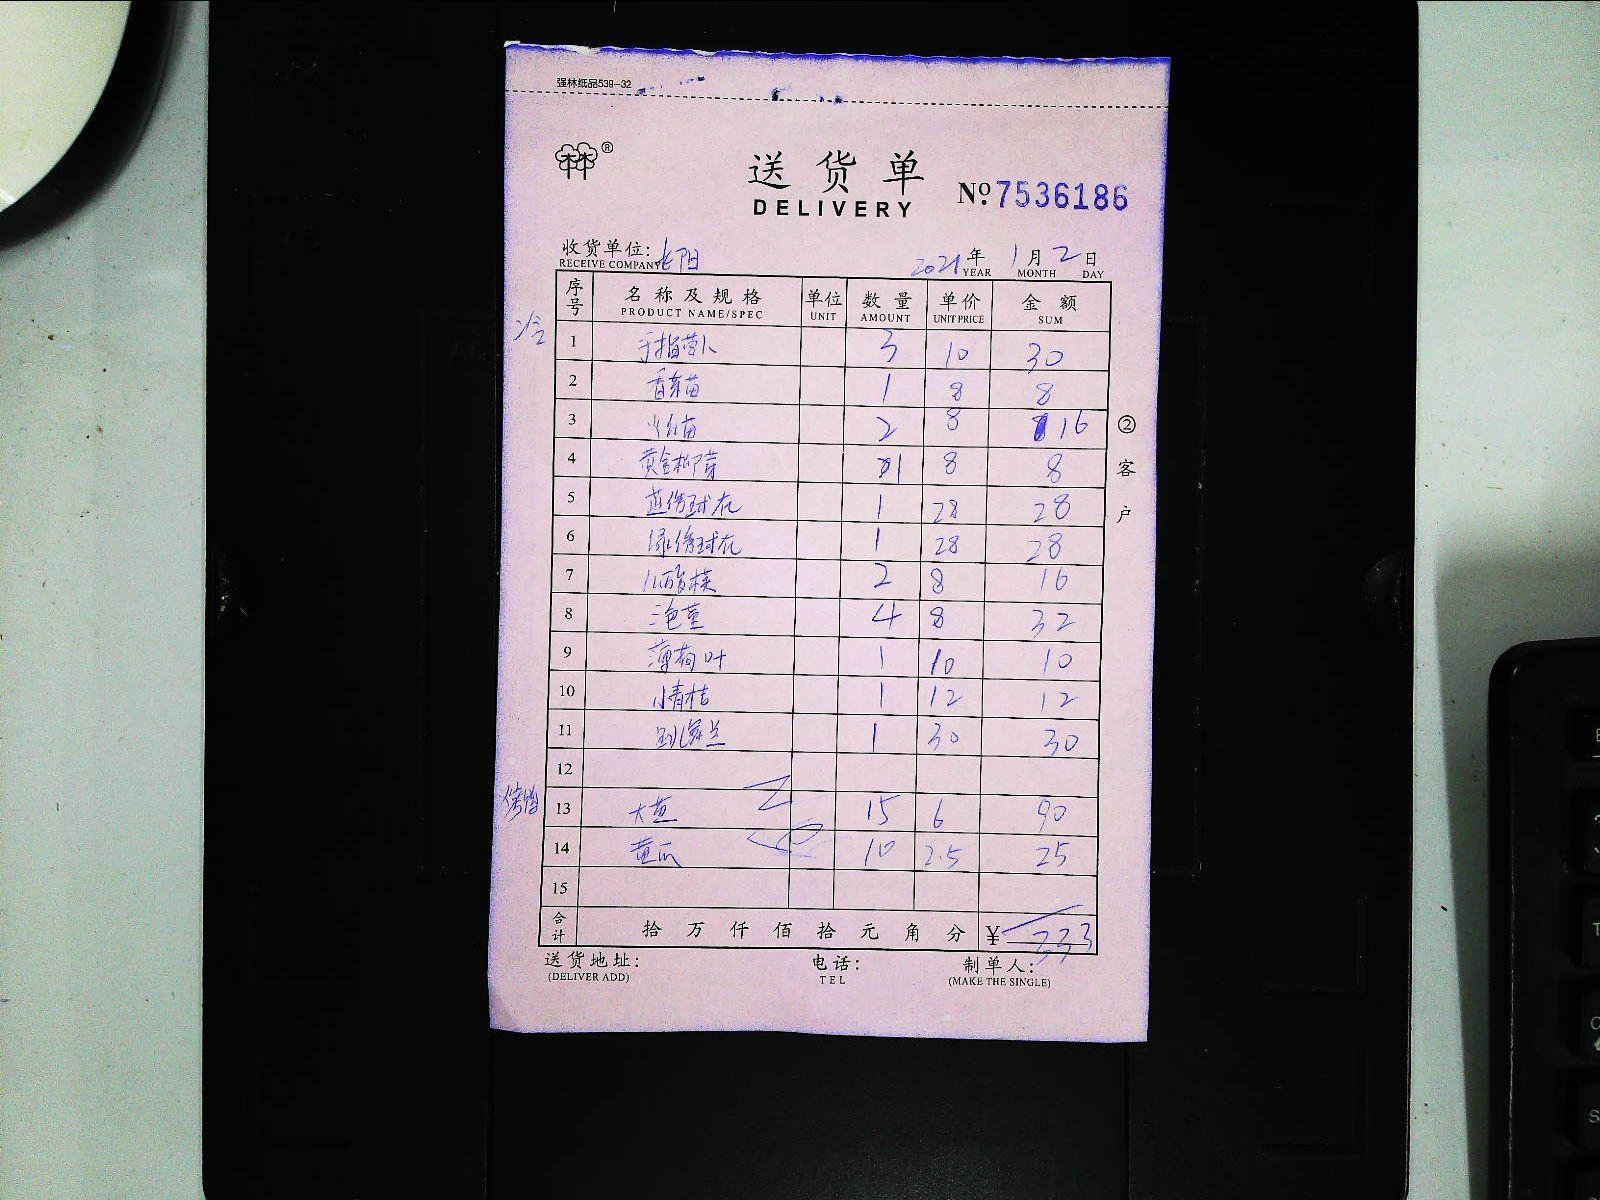 强林纸品539-32
®
送货单
DELIVERY
№ 7536186
收货单位: 长阳 2021年 1月 2日
RECEIVE COMPANY YEAR MONTH DAY
序号 名称及规格 单位 数量 单价 金额
PRODUCT NAME/SPEC UNIT AMOUNT UNIT PRICE SUM
1 手指萝卜 3 10 30
2 香菜苗 1 8 8
3 苗 2 8 16
4 黄金柳芽 1 8 8
5 球花 1 28 28
6 球花 1 28 28
7 2 8 16
8 三色堇 4 8 32
9 薄荷叶 1 10 10
10 小青桔 1 12 12
11 跳舞兰 1 30 30
12
13 大 15 6 90
14 黄瓜 10 2.5 25
15
合计 拾 万 仟 佰 拾 元 角 分 ¥ 333
送货地址: 电话: 制单人:
(DELIVER ADD) TEL (MAKE THE SINGLE)
②客户